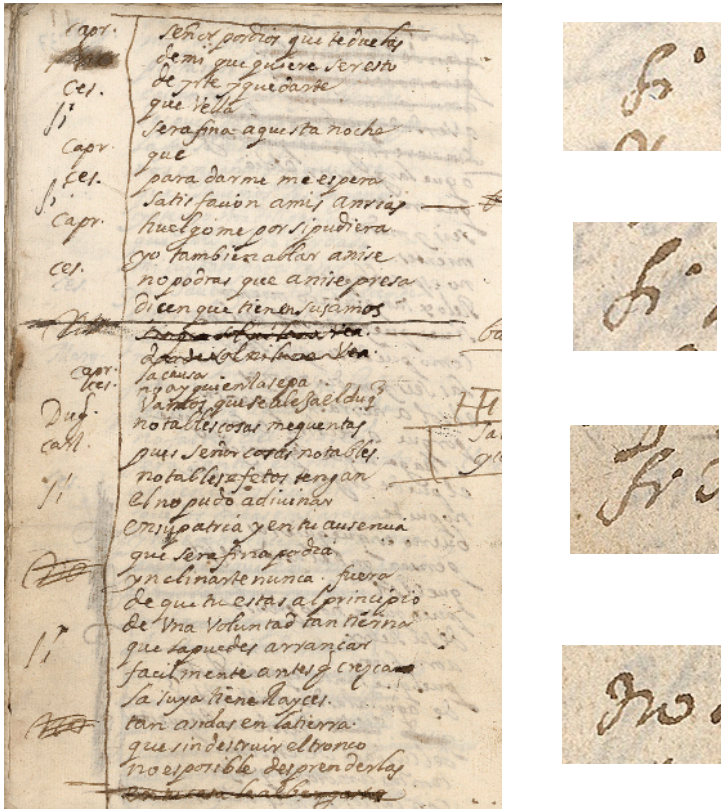 Capr. señor por dios que te duelas
de mi que quiere ser esto
ces. de yrte y quedarte
que Vella
si serafina aquesta noche
Capr. que
ces. para darme me espera
si satisfaçion a mis ansias
Capr. huelgome por si pudiera
yo tambien ablar a nise
ces. no podras que a nise presa
diçen que tienen sus amos
la causa
capr. no ay quien la sepa
ces. Vamos que se alexa el duq
Duq. notables cosas me quentas
carl. pues señor cosas notables
notables efetos tengan
si el no pudo adivinar
en su patria y en tu ausençia
que serafina podia
ynclinarte nunca. fuera
de que tu estas al principio
de Vna Voluntad tan tierna
si que la puedes arrancar
facilmente antes q crezca
la suya tiene Rayçes
tan asidas en la tierra
que sin destruir el tronco
no es posible desprenderlas
si
si
si
no